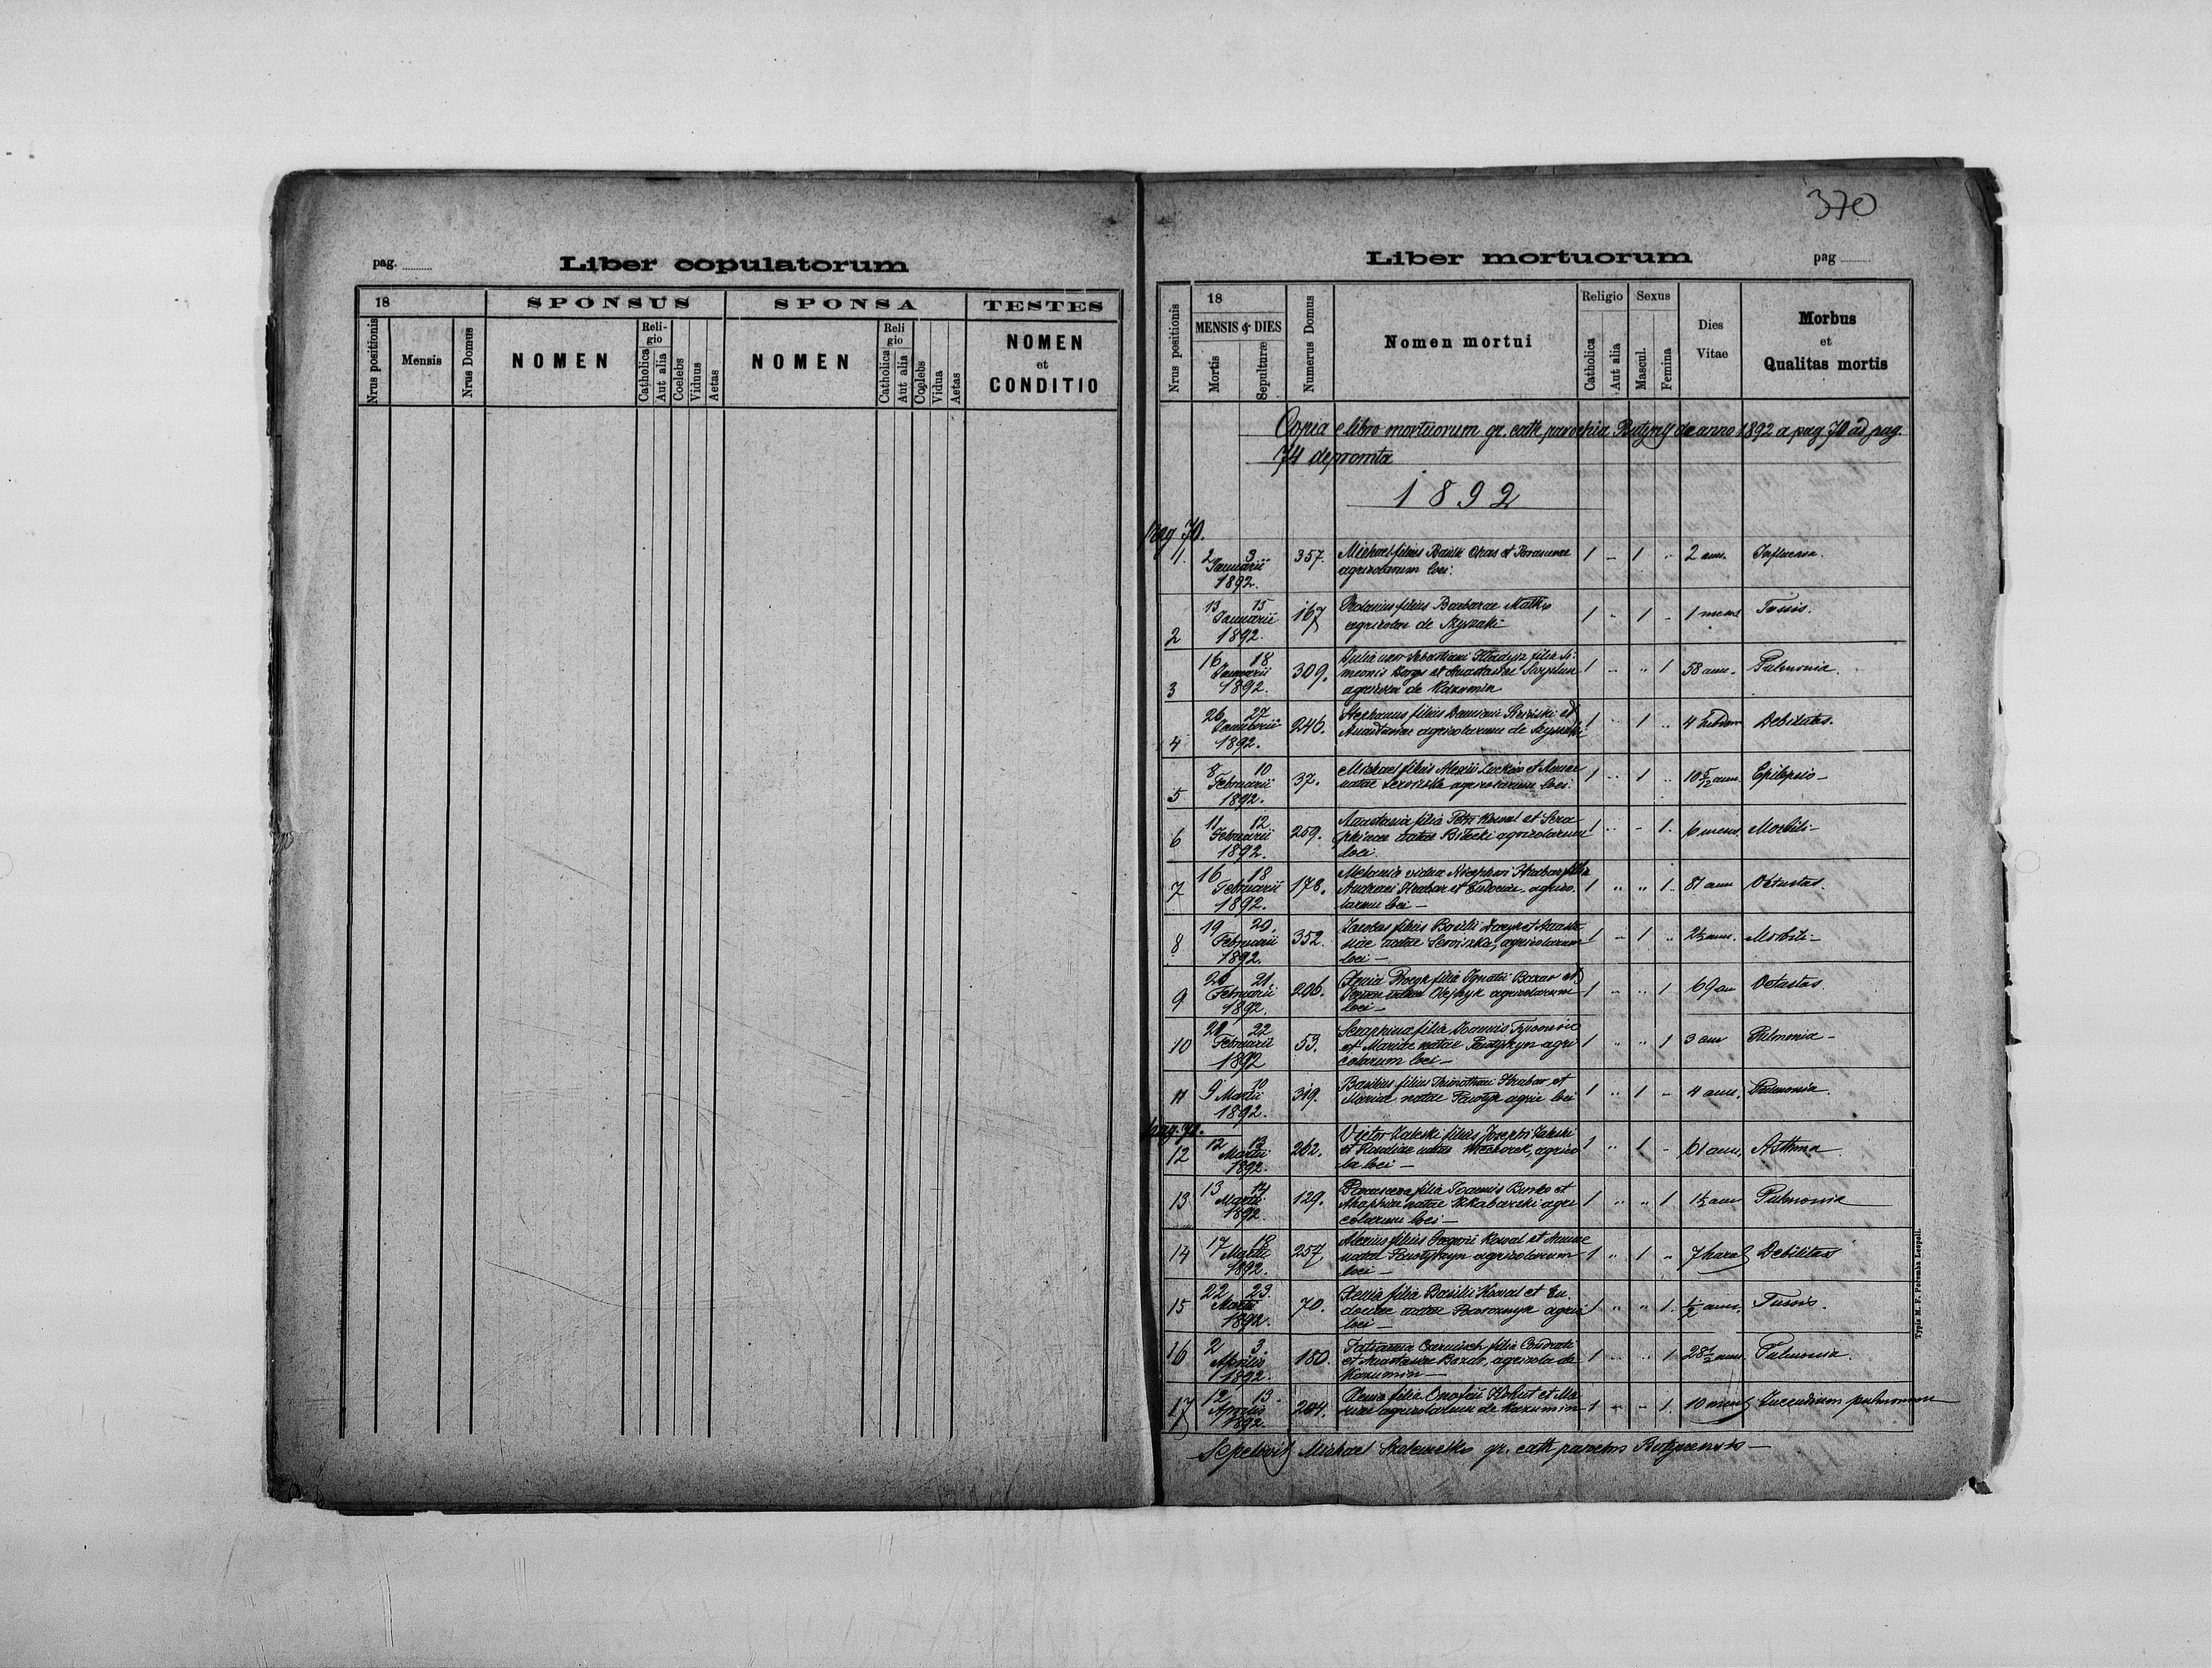 pag.
Liber copulatorum
18
SPONSUS
SPONSA
TESTES
Nrus positionis
Mensis
Nrus Domus
NOMEN
Religio
Catholica
Aut alia
Coelebs
Viduus
Aetas
NOMEN
Religio
Catholica
Aut alia
Coelebs
Vidua
Aetas
NOMEN
et
CONDITIO
370
Liber mortuorum
pag
Nrus positionis
18
MENSIS & DIES
Mortis
Sepulturæ
Numerus Domus
Nomen mortui
Religio
Catholica
Aut alia
Sexus
Mascul.
Femina
Dies
Vitae
Morbus
et
Qualitas mortis
Copia e libro mortuorum gr. cath. parochia Butyny de anno 1892 a pag 70 ad pag.
74 depromta
1892
pag 70.
1. 2 3 Januarii 1892. 357. Michael filius Basilii et Parascevae
agricolarum loci. 1 - 1 " 2 ann. Influenza.
2 13 15 Januarii 1892. 167 filius Barbarae
agricolae de 1 " 1 " 1 mens Tussis.
3 16 18 Januarii 1892. 309. Julia uxor Sebastiani filia Si-
meonis et Anastasiae
agricola de Kazumin 1 " " 1 58 ann. Pulmonia.
4 26 27 Januarii 1892. 246. Stephanus filius Damiani et
Anastasiae agricolarum de 1 " 1 " 4 Debilitas.
5 8 10 Februarii 1892. 37. Michael filius Alexii et Annae
natae agricolarum loci. 1 " 1 " 10 5/12 ann. Epilepsio -
6 11 12 Februarii 1892. 259. Anastasia filia Petri Kowal et Sera
phinae natae Bilecki agricolarum
loci. 1 " - 1. 6 mens. Morbili -
7 16 18 Februarii 1892. 178. Melania vidua Hrabar filia
Andreae Hrabar et Eudociae agrico-
larum loci - 1 " " 1. 81 ann Vetustas.
8 19 20. Februarii 1892. 352. Jacobus filius Basilii et Anasta
siae natae agricolarum
loci - 1 - 1 " 2½ ann. Morbili -
9 20 21. Februarii 1892. 206. Xenia filia Ignatii et
natae Olejnyk agricolarum
loci - 1 " " 1 69 an Vetustas.
10 21 22 Februarii 1892 53. Seraphina filia Joannis
et Mariae natae agri
colarum loci - 1 " " 1 3 ann Pulmonia -
11 9 10 Martii 1892. 319. Basilius filius Timothaei Hrabar et
Mariae natae agric loci 1 " 1 - 4 ann. Pulmonia.
pag. 71.
12 12 13 Martii 1892. 262. Victor Zaleski filius Josephi Zaleski
et Rosaliae natae agrico
la loci - 1 " 1 - 61 ann. Asthma.
13 13 14 Martii 1892. 129. Parasceva filia Joannis et
Ahaphiae natae agri
colarum loci - 1 " " 1 1½ ann Pulmonia
14 17 18 Martii 1892. 257 Alexius filius Gregorii Kowal et Annae
natae agricolarum
loci - 1 " 1 " 7 horas Debilitas
15 22 23. Martii 1892. 70. Xenia filia Basilii Kowal et Eu-
dociae natae agric
loci - 1 " " 1. ½ ann. Tussis.
16 2 3. Aprilis 1892. 180. Tatianna filia Condrati
et Anastasiae agricola de
Kazumin - 1 - " 1 28½ ann. Pulmonia.
17 12 13. Aprilis 1892. 204. Xenia filia Onofrii Kohut et Ma-
riae agricolarum de Kazumin 1 - - 1. 10 mens Incendium pulmonum
Sepelivit Michael gr. cath parochus Butynensis -
Typis M. F. Poremba Leopoli.